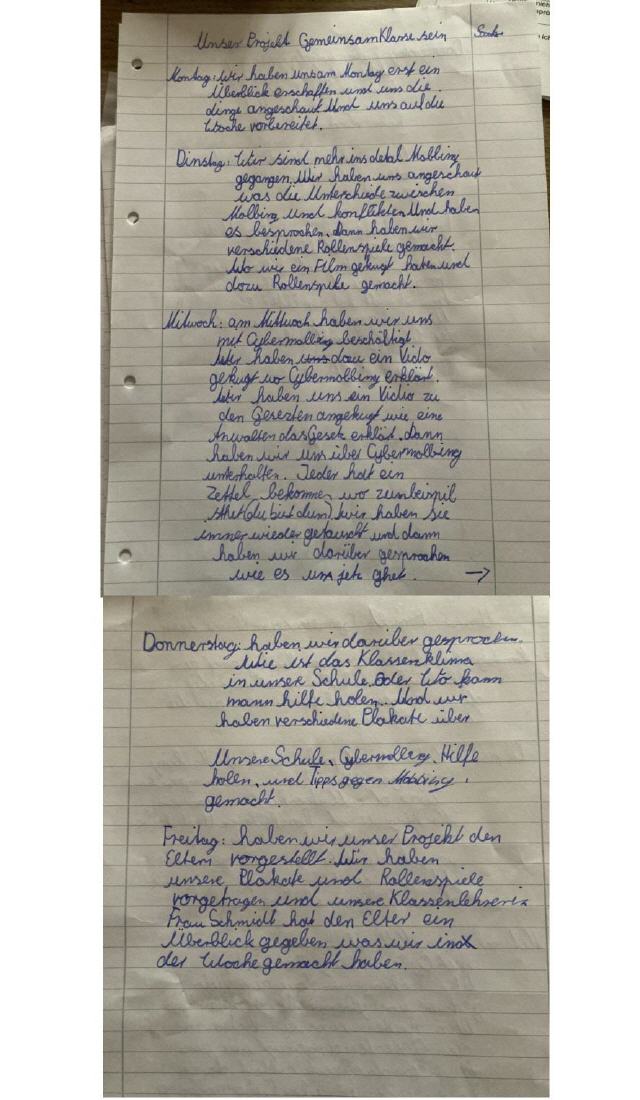 Unser Projekt Gemeinsam Klasse sein
Montag: wir haben uns am Montag erst ein
Überblick erschaffen und uns die
dinge angeschaut Und uns auf die
Woche vorbereitet.
Dinstag: Wir sind mehr ins detal Mobbing
gegangen. Wir haben uns angeschaut
was die Unterschiede zwischen
Mobing und konflikten Und haben
es besprochen. Dann haben wir
verschiedene Rollenspiele gemacht.
Wo wir ein Film gekugt haben und
dazu Rollenspile gemacht.
Mitwoch: am Mittwoch haben wir uns
mit Cybermobbing beschäftigt.
Wir haben dazu ein Vidio
gekugt wo Cybermobbing erklärt.
Wir haben uns ein Vidio zu
den Gesezten angekugt wie eine
Anwalten das Gesetz erklärt. Dann
haben wir uns über Cybermobing
unterhalten. Jeder hat ein
Zettel bekommen wo zumbeispil
sthet (du bist dum) wir haben sie
immer wieder getauscht und dann
haben wir darüber gesprochen
wie es uns jetz ghet. →
Donnerstag: haben wir darüber gesprochen.
Wie ist das Klassenklima
in unsere Schule. Oder Wo kann
mann hilfe holen. Und wir
haben verschiedene Plakate über
Unsere Schule, Cybermobbing, Hilfe
holen, und Tipps gegen Mobbing,
gemacht.
Freitag: haben wir unser Projekt den
Eltern vorgestellt. Wir haben
unsere Plakate und Rollenspiele
vorgetragen und unsere Klassenlehrerin
Frau Schmidt hat den Elter ein
Überblick gegeben was wir in
der Woche gemacht haben.